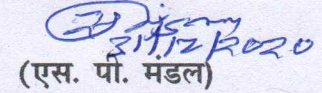 31/12/2020
(एस. पी. मंडल)